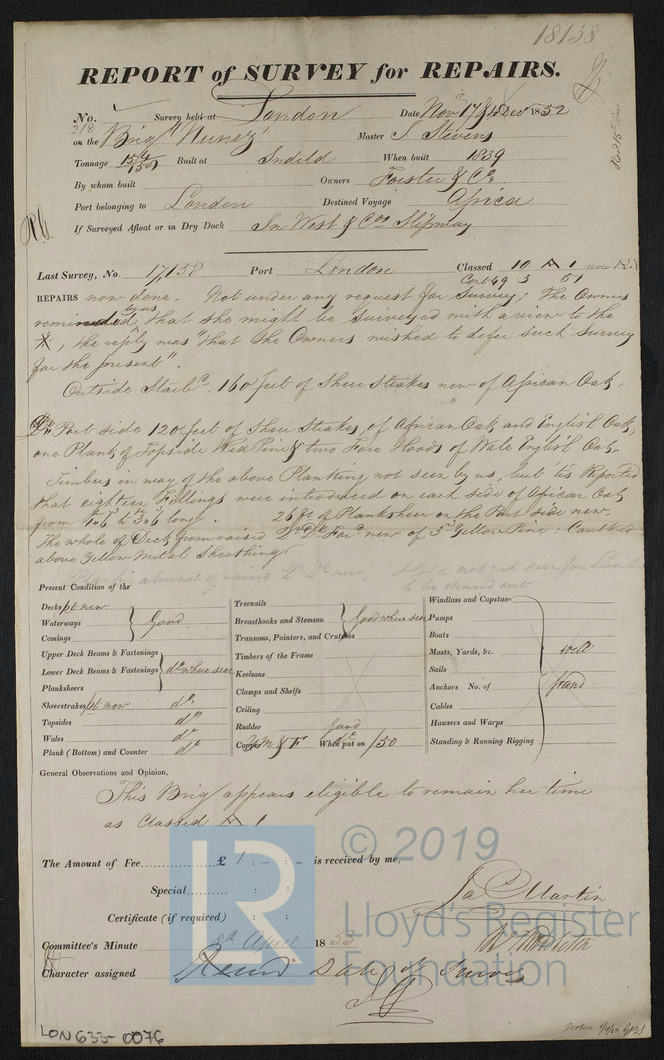 18138
REPORT of SURVEY for REPAIRS.
No. Survey held at London Date Novr 17 & Decr 1852
218
on the Brig "Nunez" Master J Stevens
Tonnage 154/150 Built at When built 1839
By whom built Owners Forster & Co.
Port belonging to London Destined Voyage Africa
If Surveyed Afloat or in Dry Dock In West & Cos Slipway
Last Survey, No. 17,158 Port London Classed 10 A 1
Cont 49 3 51
REPAIRS now done. Not under any request for Survey, The Owners
reminded by us, that she might be surveyed with a view to the
*, the reply was "that the Owners wished to defer such Survey
for the present".
Outside Starbd. 160 feet of Sheer Strakes new of African Oak,
Do Port side 120 feet of Sheer Strakes, of African Oak and English Oak,
one Plank of Topside Red Pine & two Fore Hoods of Wale English Oak.
Timbers in way of the above Planking not seen by us, but 'tis Reported
that eighteen Fillings were introduced on each side of African Oak
from 2.6 to 3.6 long. 26 ft of Planksheer on the Port side new.
The whole of Deck from raised Qr Dk Ford new of 3 in Yellow Pine: Caulked
above Yellow Metal Sheathing
Present Condition of the
Decks pt new
Waterways
Comings
Good
Upper Deck Beams & Fastenings
Lower Deck Beams & Fastenings
Planksheers
do where seen
Sheerstrakes pt new do
Topsides do
Wales do
Plank (Bottom) and Counter do
Treenails
Breasthooks and Stemson
Transoms, Pointers, and Crutches
Good where seen
Timbers of the Frame
Keelsons
Clamps and Shelfs
Ceiling
Rudder good
Copper YM & F When put on /50
Windlass and Capstan
Pumps
Boats
Masts, Yards, &c.
Sails
Anchors No. of
Cables
Hawsers and Warps
Standing & Running Rigging
well
found
General Observations and Opinion,
This Brig appears eligible to remain her time
as Classed A 1
The Amount of Fee £ 1 : - : - is received by me,
Special : :
Certificate (if required) : :
Jas Martin
Committee's Minute April 1853
Character assigned
LON 633-0076
LR
© 2019
Lloyd's Register
Foundation